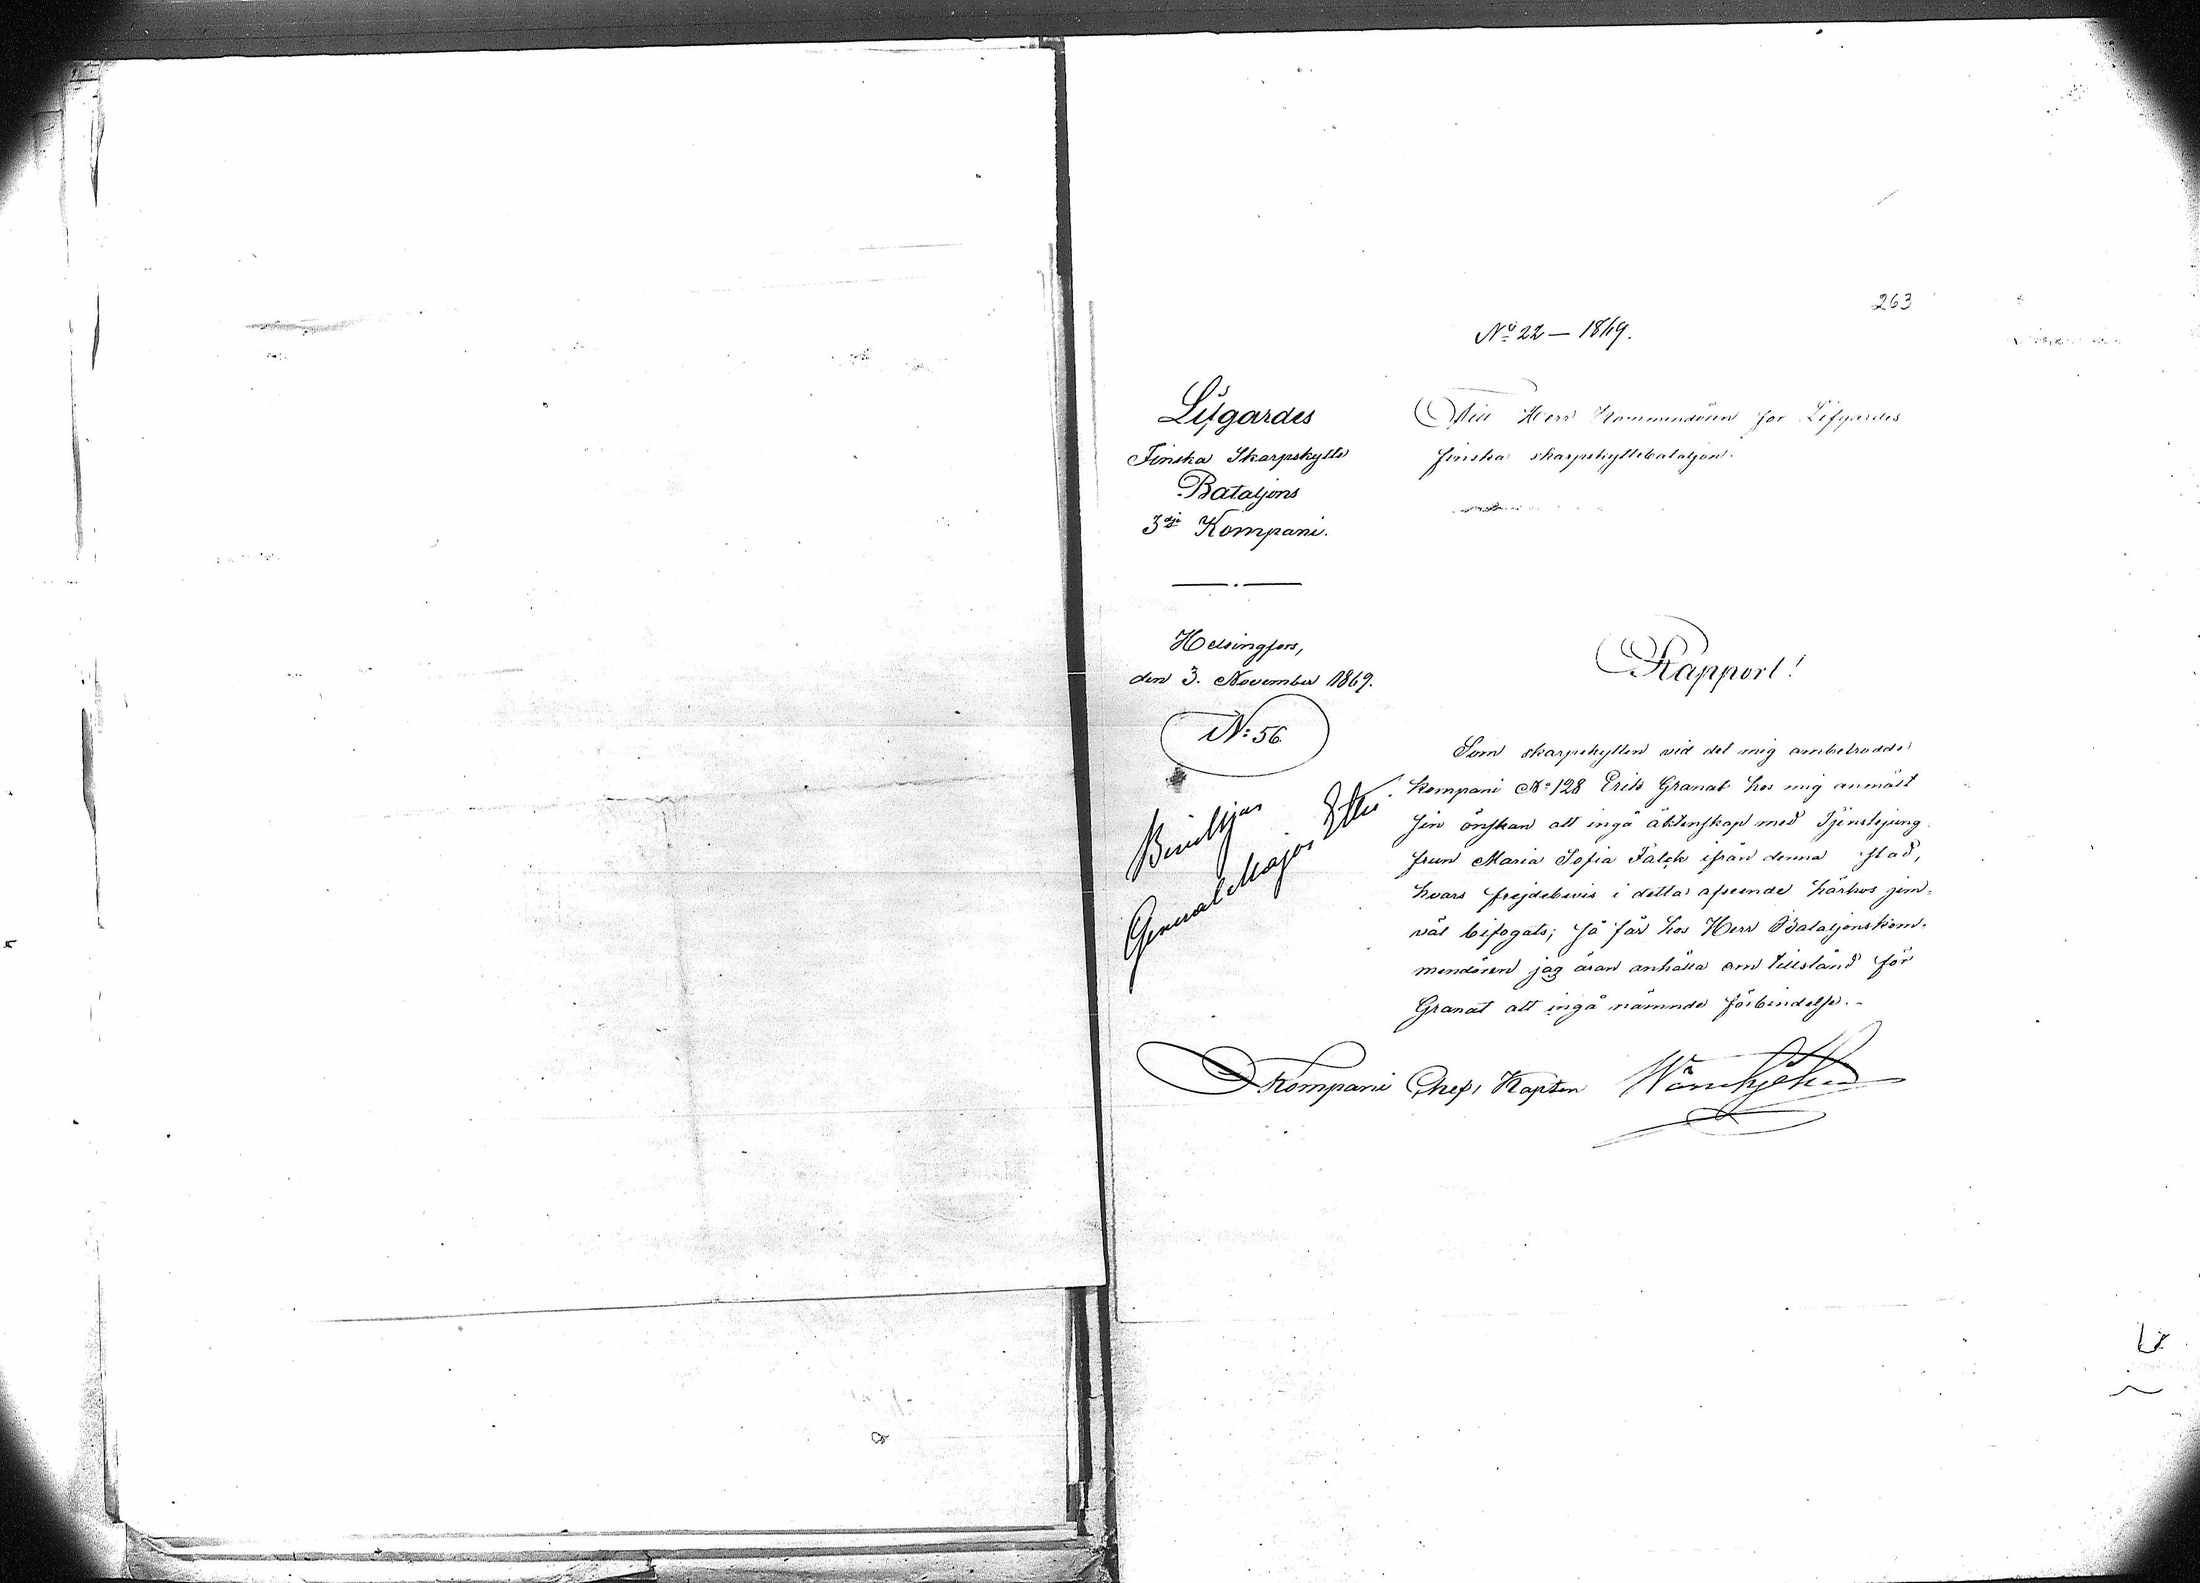 263
No 22 — 1869.
Lifgardes
Finska Skarpskytte
Bataljons
3dje Kompani.
Till Herr Kommendören för Lifgardes
finska skarpskyttebataljon.
Helsingfors,
den 3. November 1869.
N: 56.
Beviljas
General Major
Rapport!
Som skarpskytten vid det mig ambetrodde
kompani No 128 Erik Granat hos mig anmält
sin önskan att ingå äktenskap med Tjenstejung-
frun Maria Sofia Falck ifrån denna stad,
hvars frejdebevis i detta afseende härhos jem-
väl bifogats; så får hos Herr Bataljonskom-
mendören jag äran anhålla om tillstånd för
Granat att ingå nämnde förbindelse.-
Kompani Chef, Kapten